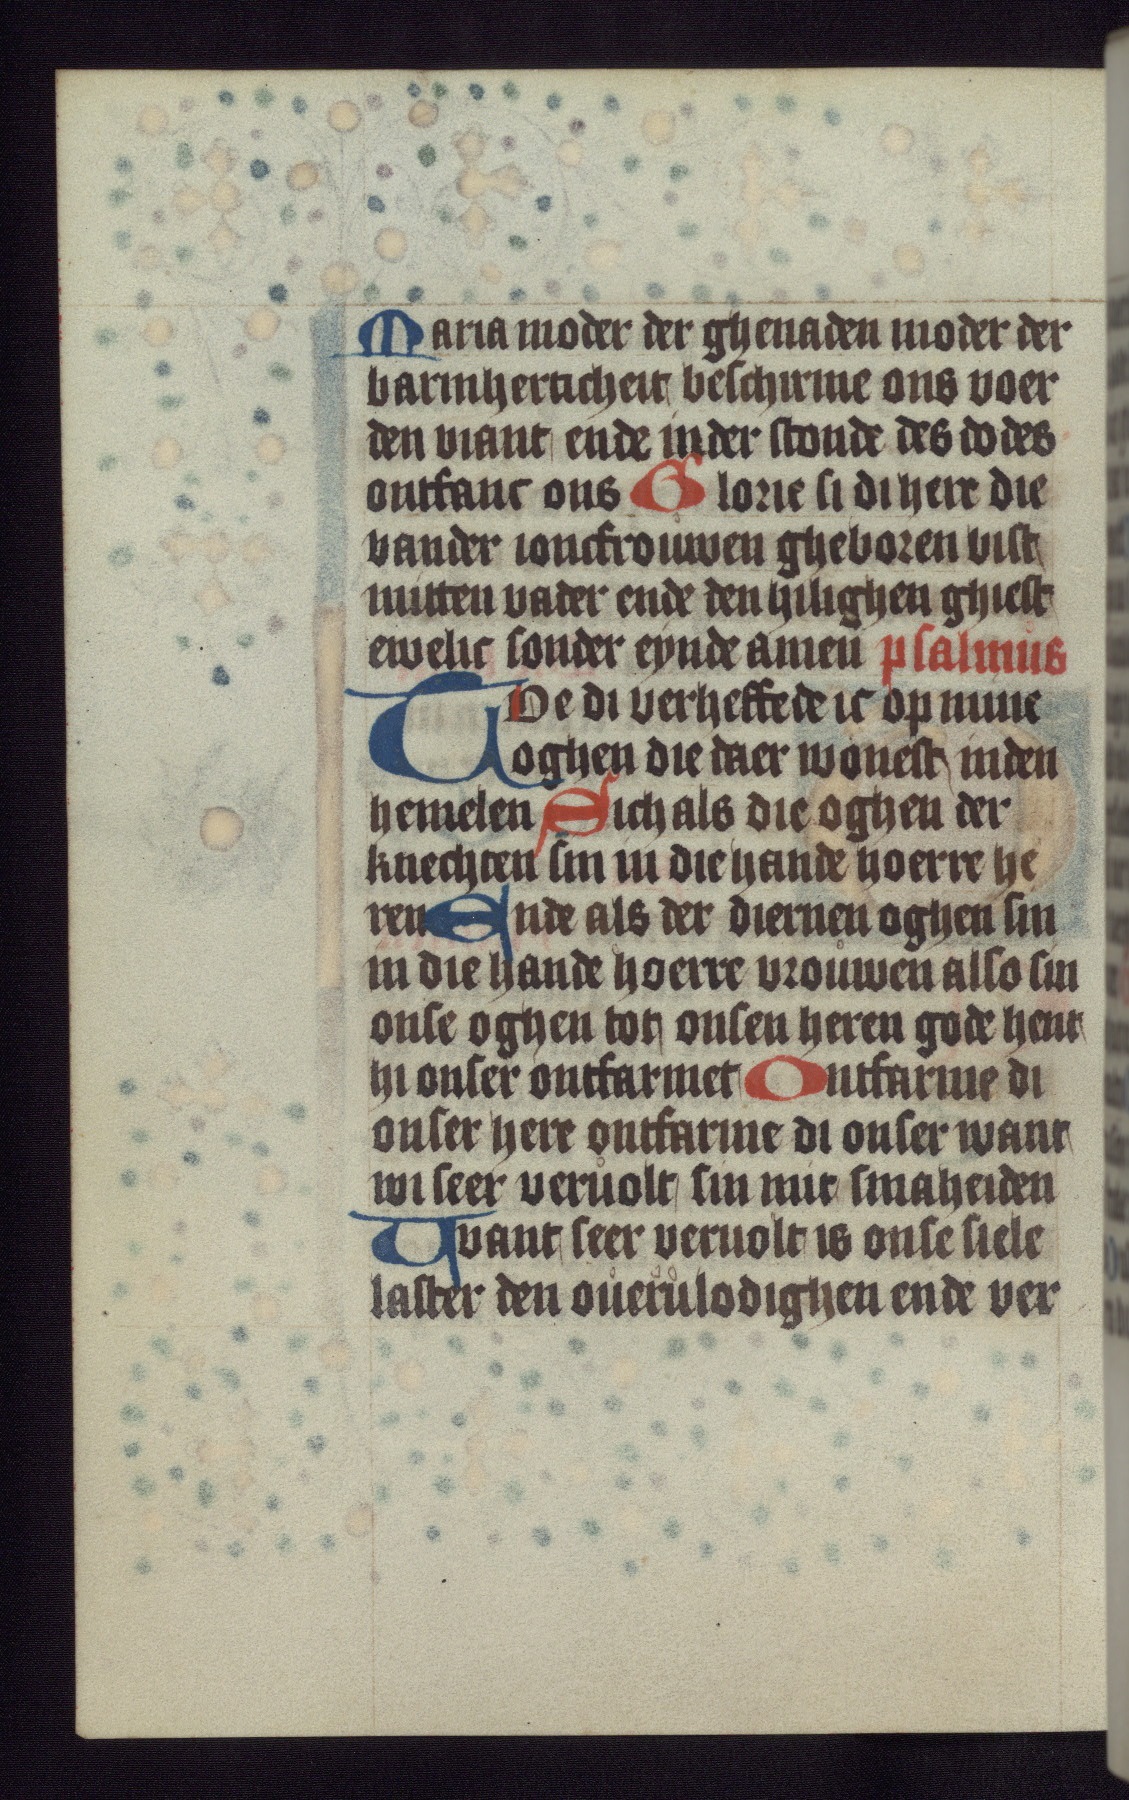 Maria moder der ghenaden moder der
barmherticheit beschirme ons voer
den viant ende in der stonde des dodes
ontfanc ons Glorie si di here die
vander ioncfrouwen gheboren bist
mitten vader ende den hilighen ghiest
ewelic sonder eynde amen psalmus
Toe di verheffede ic op mine
oghen die daer wonest inden
hemelen Sich als die oghen der
knechten sin in die hande hoerre he
ren Ende als der diernen oghen sin
in die hande hoerre vrouwen also sin
onse oghen tot onsen heren gode hent
hi onser ontfarmet Ontfarme di
onser here ontfarme di onser want
wi seer veruolt sin mit smaheiden
Want seer veruolt is onse siele
laster den ouerulodighen ende ver